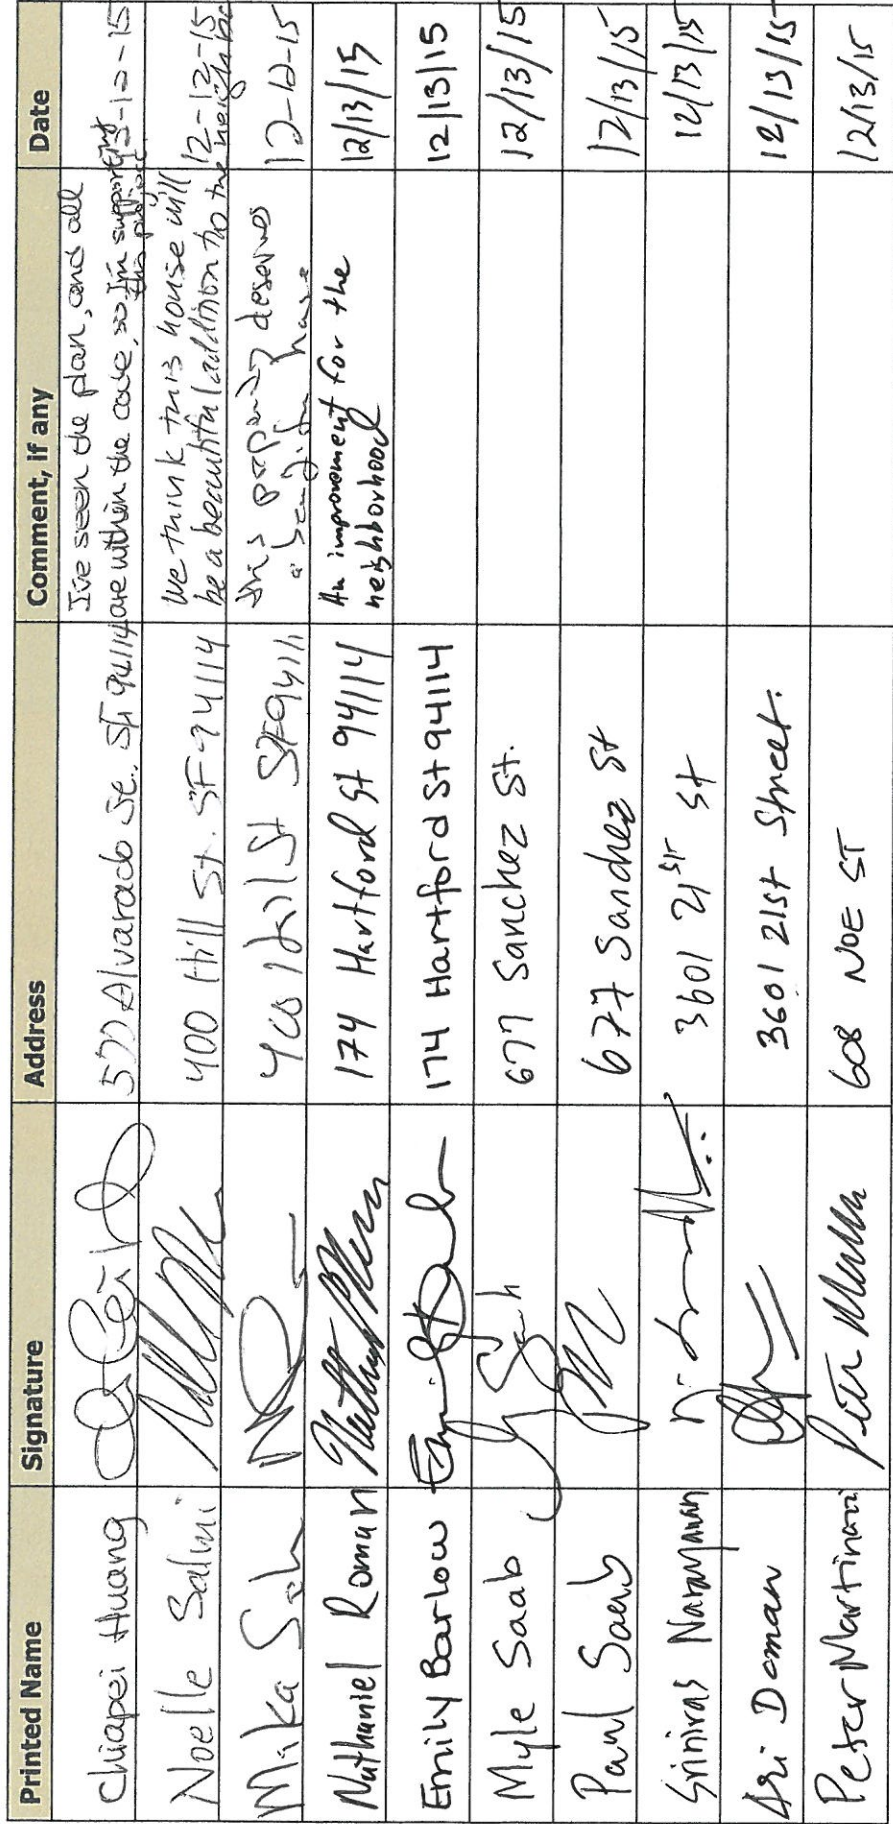 Printed Name Signature Address Comment, if any Date
Chiapei Huang Alvarado St., SF 94114 I've seen the plan, and all
are within the code, so I'm supporting
this project 12-12-15
Noelle Salmi 400 Hill St. SF 94114 We think this house will
be a beautiful addition to the neighborhood 12-12-15
Mika 400 Hill St SF 94114 this property deserves
a house 12-12-15
Nathaniel Roman 174 Hartford St 94114 An improvement for the
neighborhood 12/13/15
Emily Barlow 174 Hartford St 94114 12/13/15
Myle Saab 677 Sanchez St. 12/13/15
Paul Saab 677 Sanchez St 12/13/15
Srinivas Narayanan 3601 21st St 12/13/15
Ari 3601 21st Street. 12/13/15
Peter Martinazzi 608 NOE ST 12/13/15